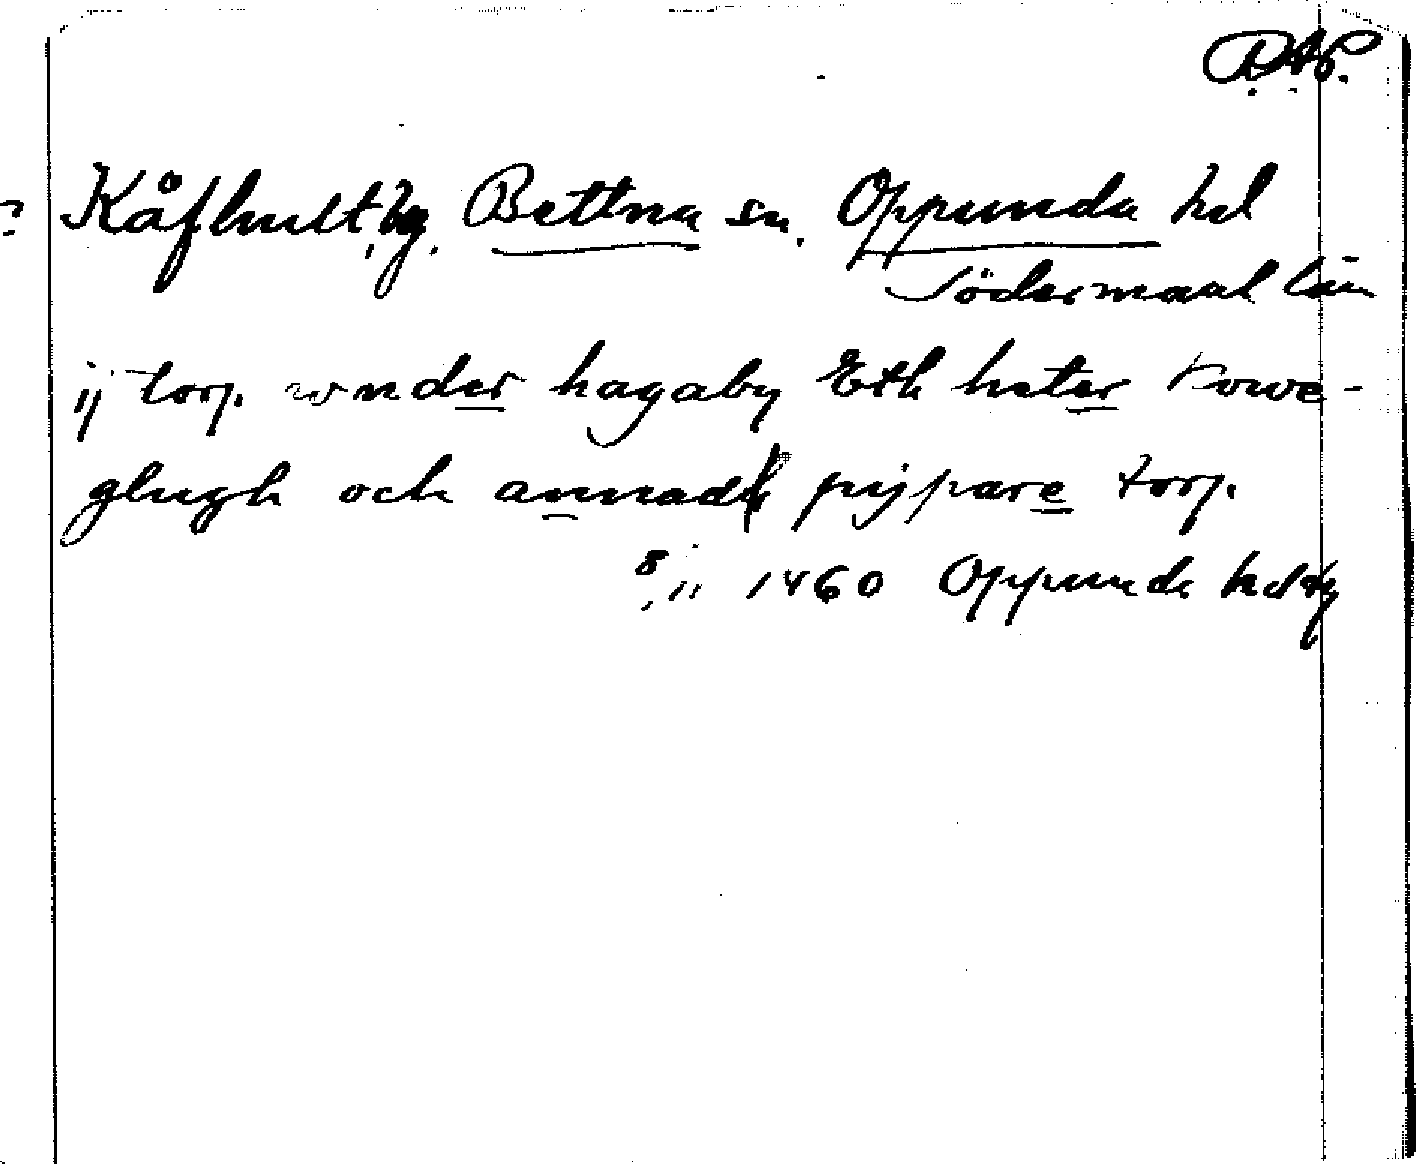 R.A.P.
Kåfhult, by. Bettna sn. Oppunda hd
Södermanl län
ij torp. wnder hagaby Eth heter kowe-
glugh och annadh pijpare torp.
8/11 1460 Oppunda hd